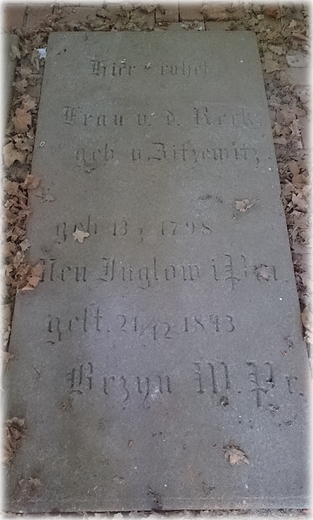 Hier ruhet
Frau v. d. Reck
geb. v. Zitzewitz
geb 13/ 1798
Neu Juglow i Pm.
gest. 21/12 1843
Brzyn W. Pr.